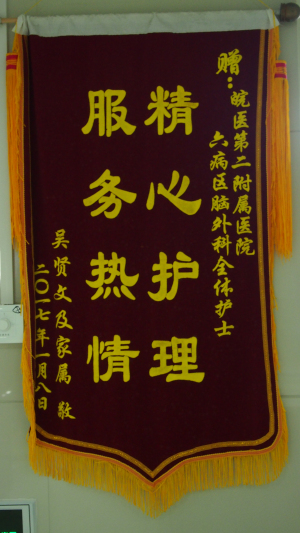 赠：皖医第二附属医院
六病区脑外科全体护士
精心护理
服务热情
吴贤文及家属敬
二〇一七年一月八日